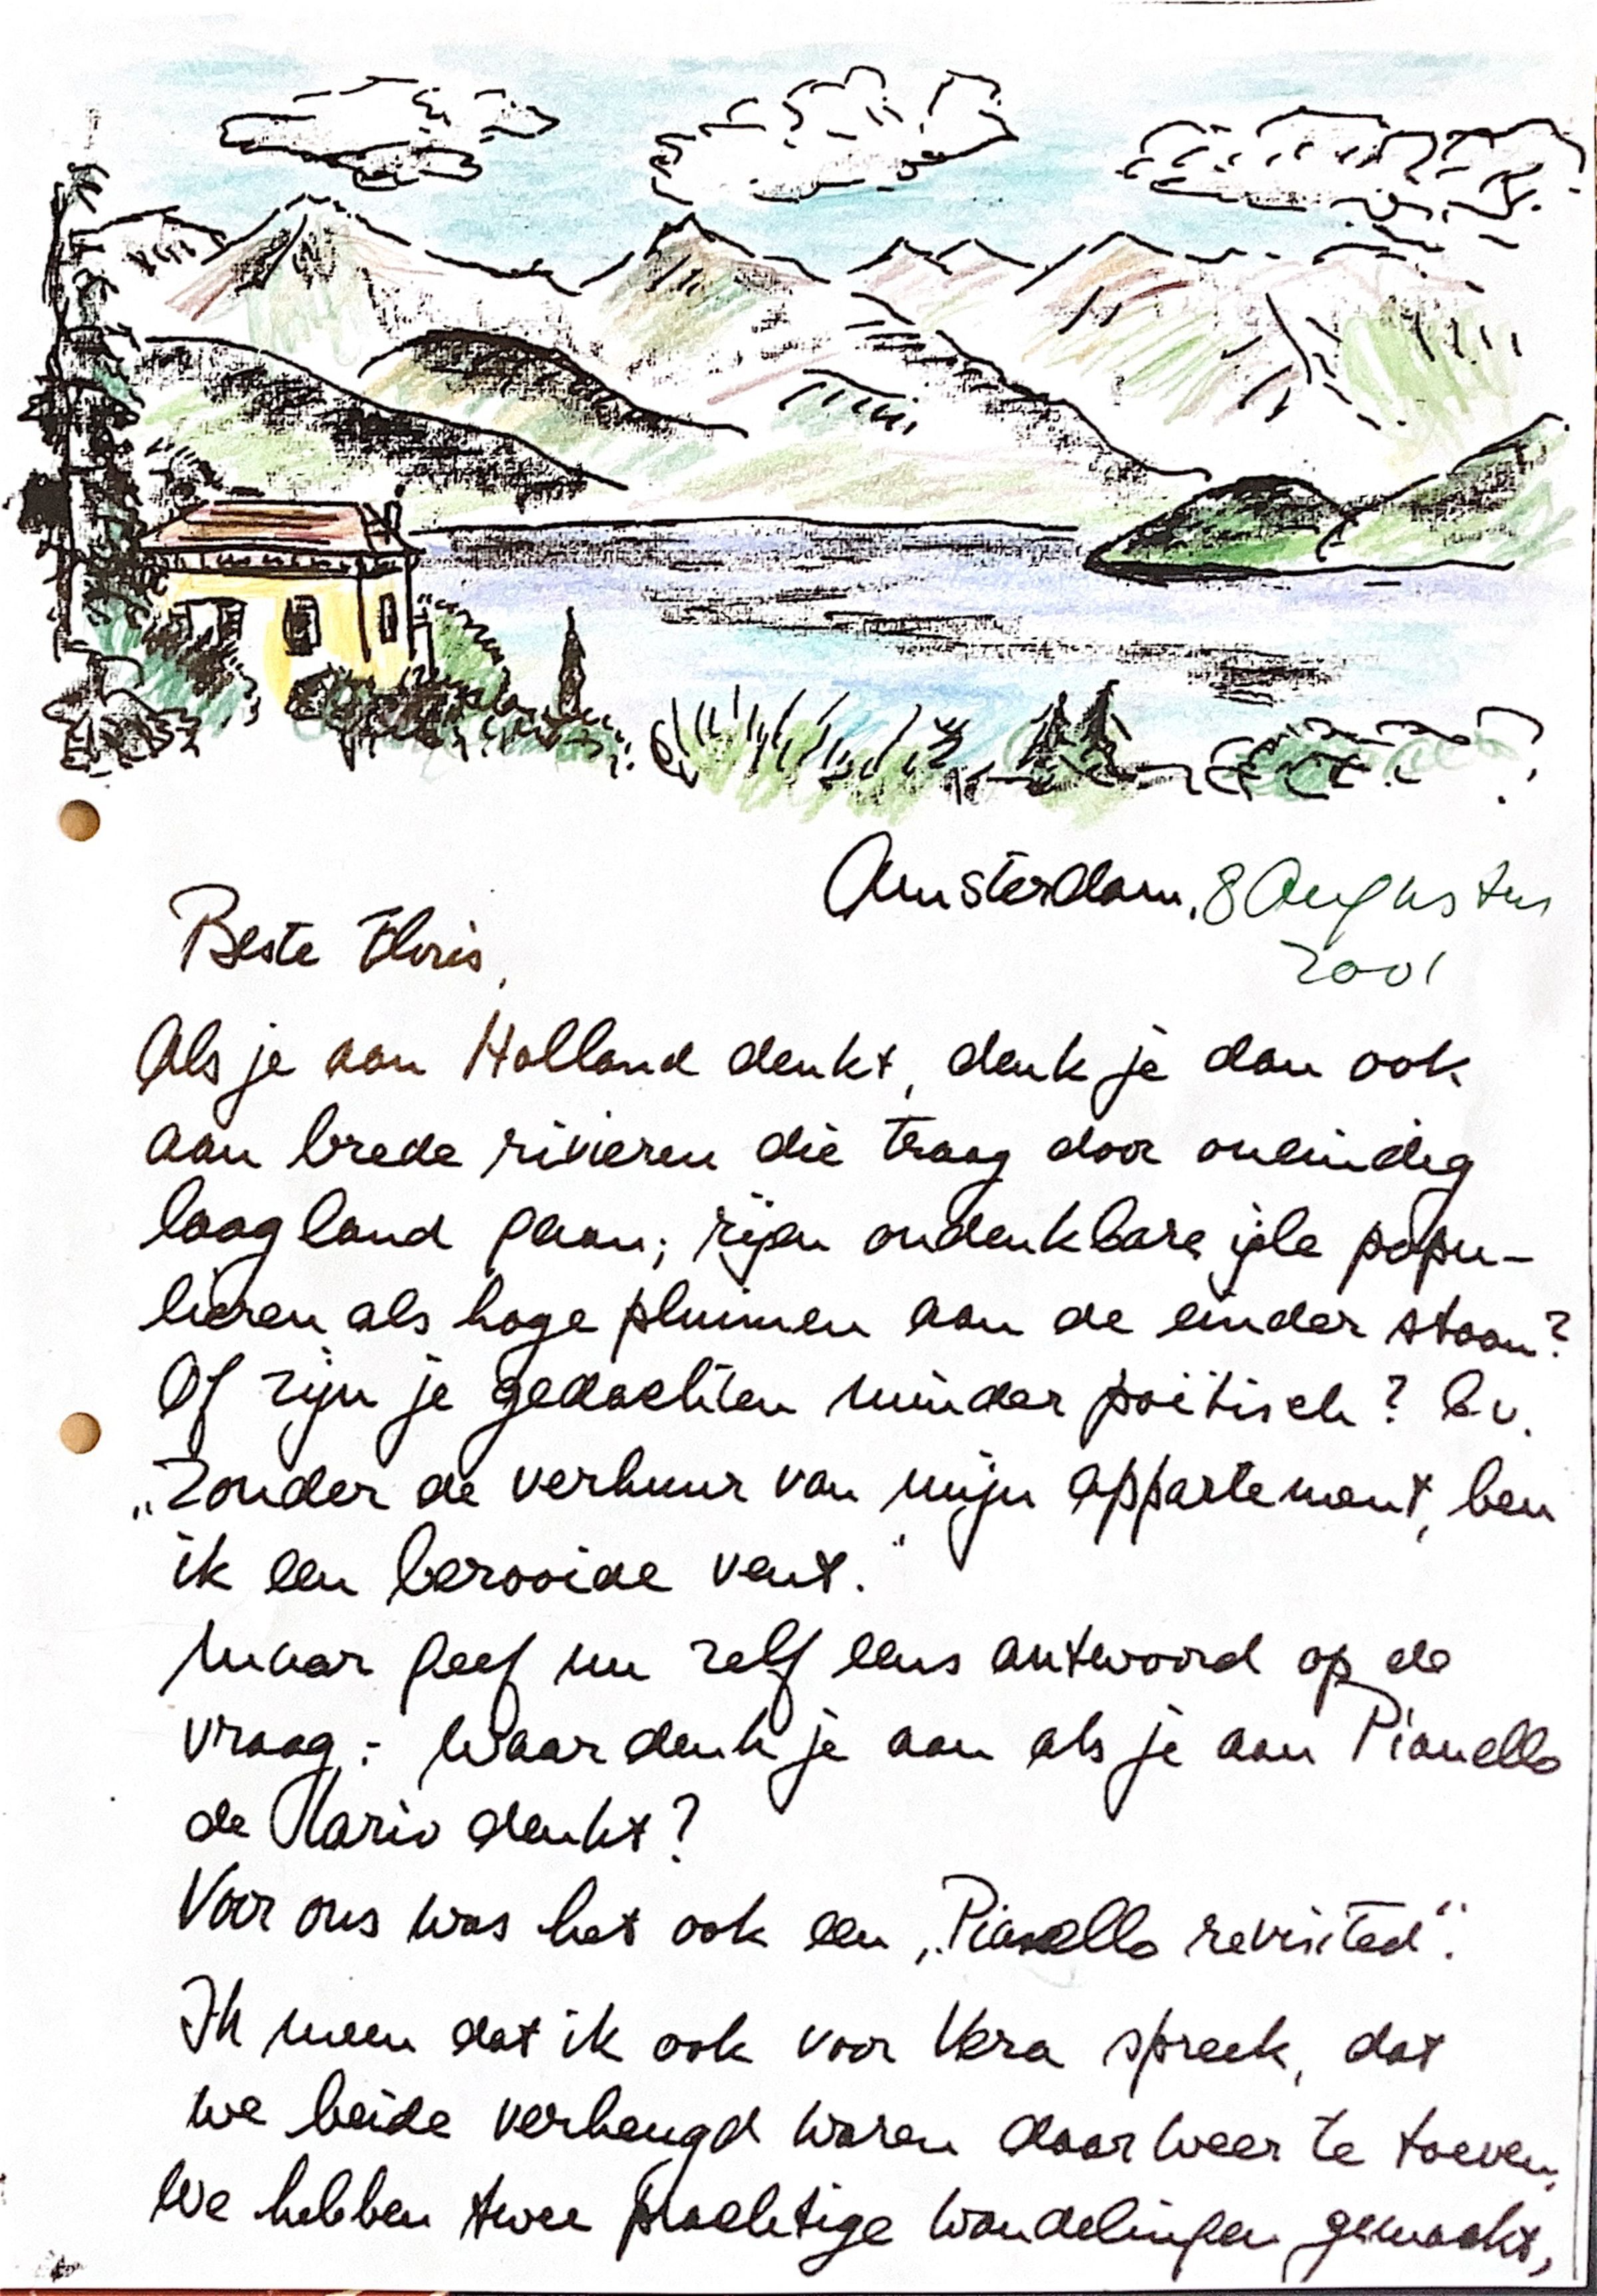 Amsterdam, 8 Augustus
2001
Beste Floris,
Als je aan Holland denkt, denk je dan ook
aan brede rivieren die traag door oneindig
laagland gaan; rijen ondenkbare ijle popu-
lieren als hoge pluimen aan de einder staan?
Of zijn je gedachten minder poëtisch? bv.
„Zonder de verhuur van mijn appartement, ben
ik een berooide vent."
Maar geef nu zelf eens antwoord op de
vraag: Waar denk je aan als je aan Pianello
de Lario denkt?
Voor ons was het ook een „Pianello revisited".
Ik meen dat ik ook voor Vera spreek, dat
we beide verheugd waren daar weer te toeven.
We hebben twee prachtige wandelingen gemaakt,